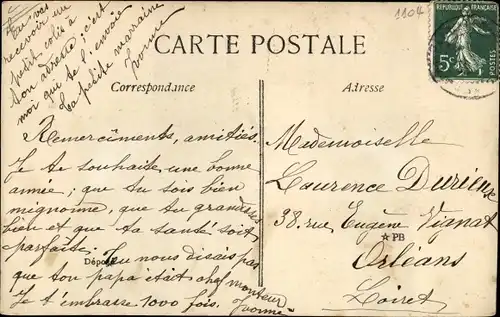 Tu vas
recevoir un
petit colis à
ton adresse ; c'est
moi que te l'envoie
Ta petite marraine
Yvonne
1104
RÉPUBLIQUE FRANÇAISE
5c
POSTES
CARTE POSTALE
Correspondance
Adresse
Remercîments, amitiés.
Je te souhaite une bonne
année ; que tu sois bien
mignonne, que tu grandisses
bien et que ta santé soit
parfaite. Tu nous disais pas
Déposé
que ton papa était chef monteur
Je t'embrasse 1000 fois. Yvonne
Mademoiselle
Laurence Durieux
38, rue Eugène Vignat
☆PB
Orléans
Loiret